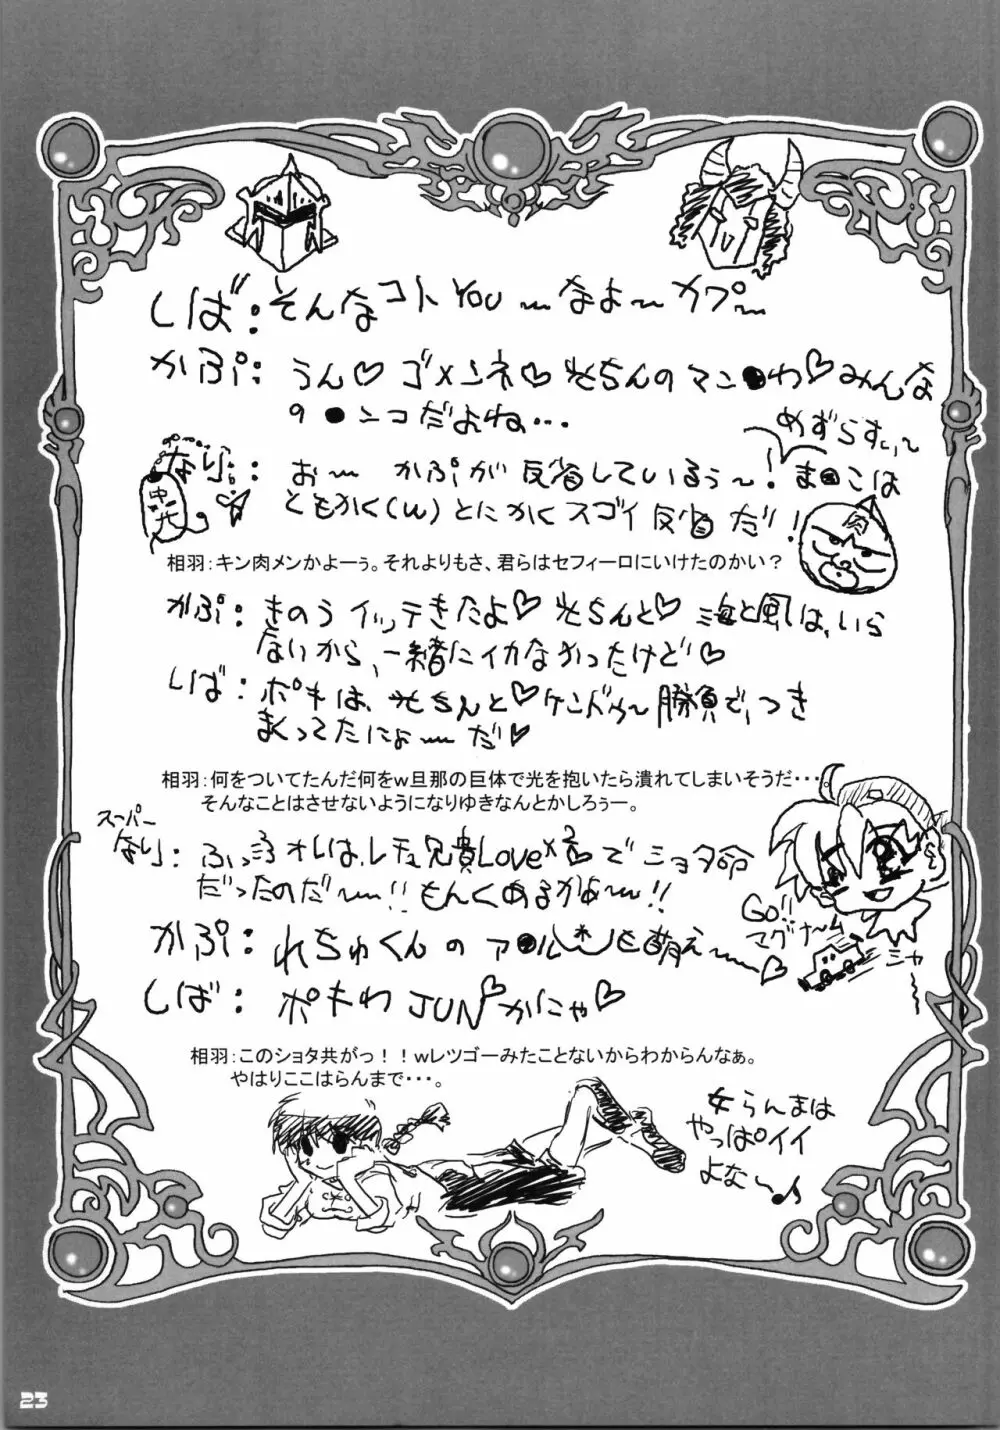 しば：そんなコトYOU～なよ～カプ～
かぷ：うん♡ゴメンネ♡光ちんのマン●わ♡みんな
の●ンコだよね…
めずらすぃ～
なり：お～ かぷが反省しているぅ～！ま●こは
ともかく(w)とにかくスゴイ反省だ！
肉
相羽：キン肉メンかよーぅ。それよりもさ、君らはセフィーロにいけたのかい？
かぷ：きのうイッテきたよ♡光ちんと♡海と風は、いら
ないから、一緒にイカなかったけど♡
しば：ポキは、光ちんと♡ケンドゥ～勝負で、つき
まくってたにょ～だ♡
相羽：何をついてたんだ何をw旦那の巨体で光を抱いたら潰れてしまいそうだ・・・
そんなことはさせないようになりゆきなんとかしろぅー。
スーパー
なり：ふっふうオレは、レチュ兄貴Love
でショタ命
だったのだ～!!もんくあるかよ～!!
GO!!
マグナーム
ミャー
かぷ：れちゅくんのア●ルも萌え～♡
しば：ポキわJUN♡かにゃ♡
相羽：このショタ共がっ！！wレツゴーみたことないからわからんなぁ。
やはりここはらんまで・・・。
女らんまは
やっぱイイ
よな～♪
23